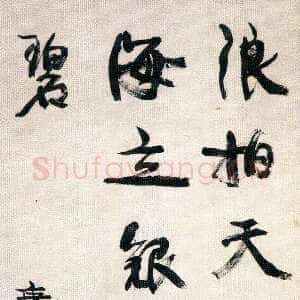 浪拍天
海立銀
碧
Shufawang.cn